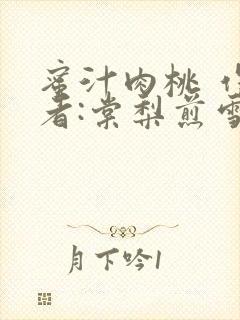 蜜汁肉桃 作
者:棠梨煎雪
月下吟1